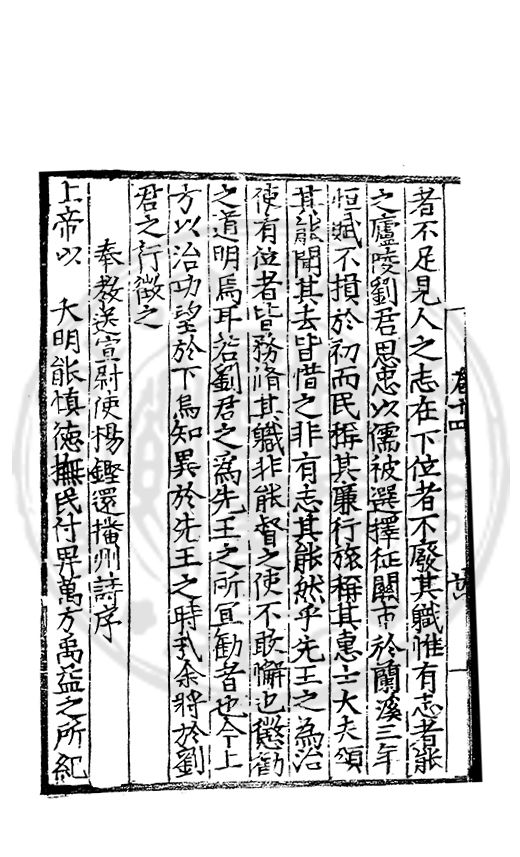 卷十四
者不足見人之志在下位者不廢其職惟有志者能
之廬陵劉君思忠以儒被選擇征關市於蘭溪三年
恒賦不損於初而民稱其廉行旅稱其惠士大夫頌
其能聞其去皆惜之非有志其能然乎先王之為治
使有位者皆務脩其職非能督之使不敢懈也懲勸
之道明焉耳若劉君之為先王之所宜勸者也今上
方以治功望於下烏知異於先王之時哉余將於劉
君之行徵之
奉教送宣尉使楊鏗還播州詩序
上帝以 大明能慎德撫民付畀萬方禹益之所紀